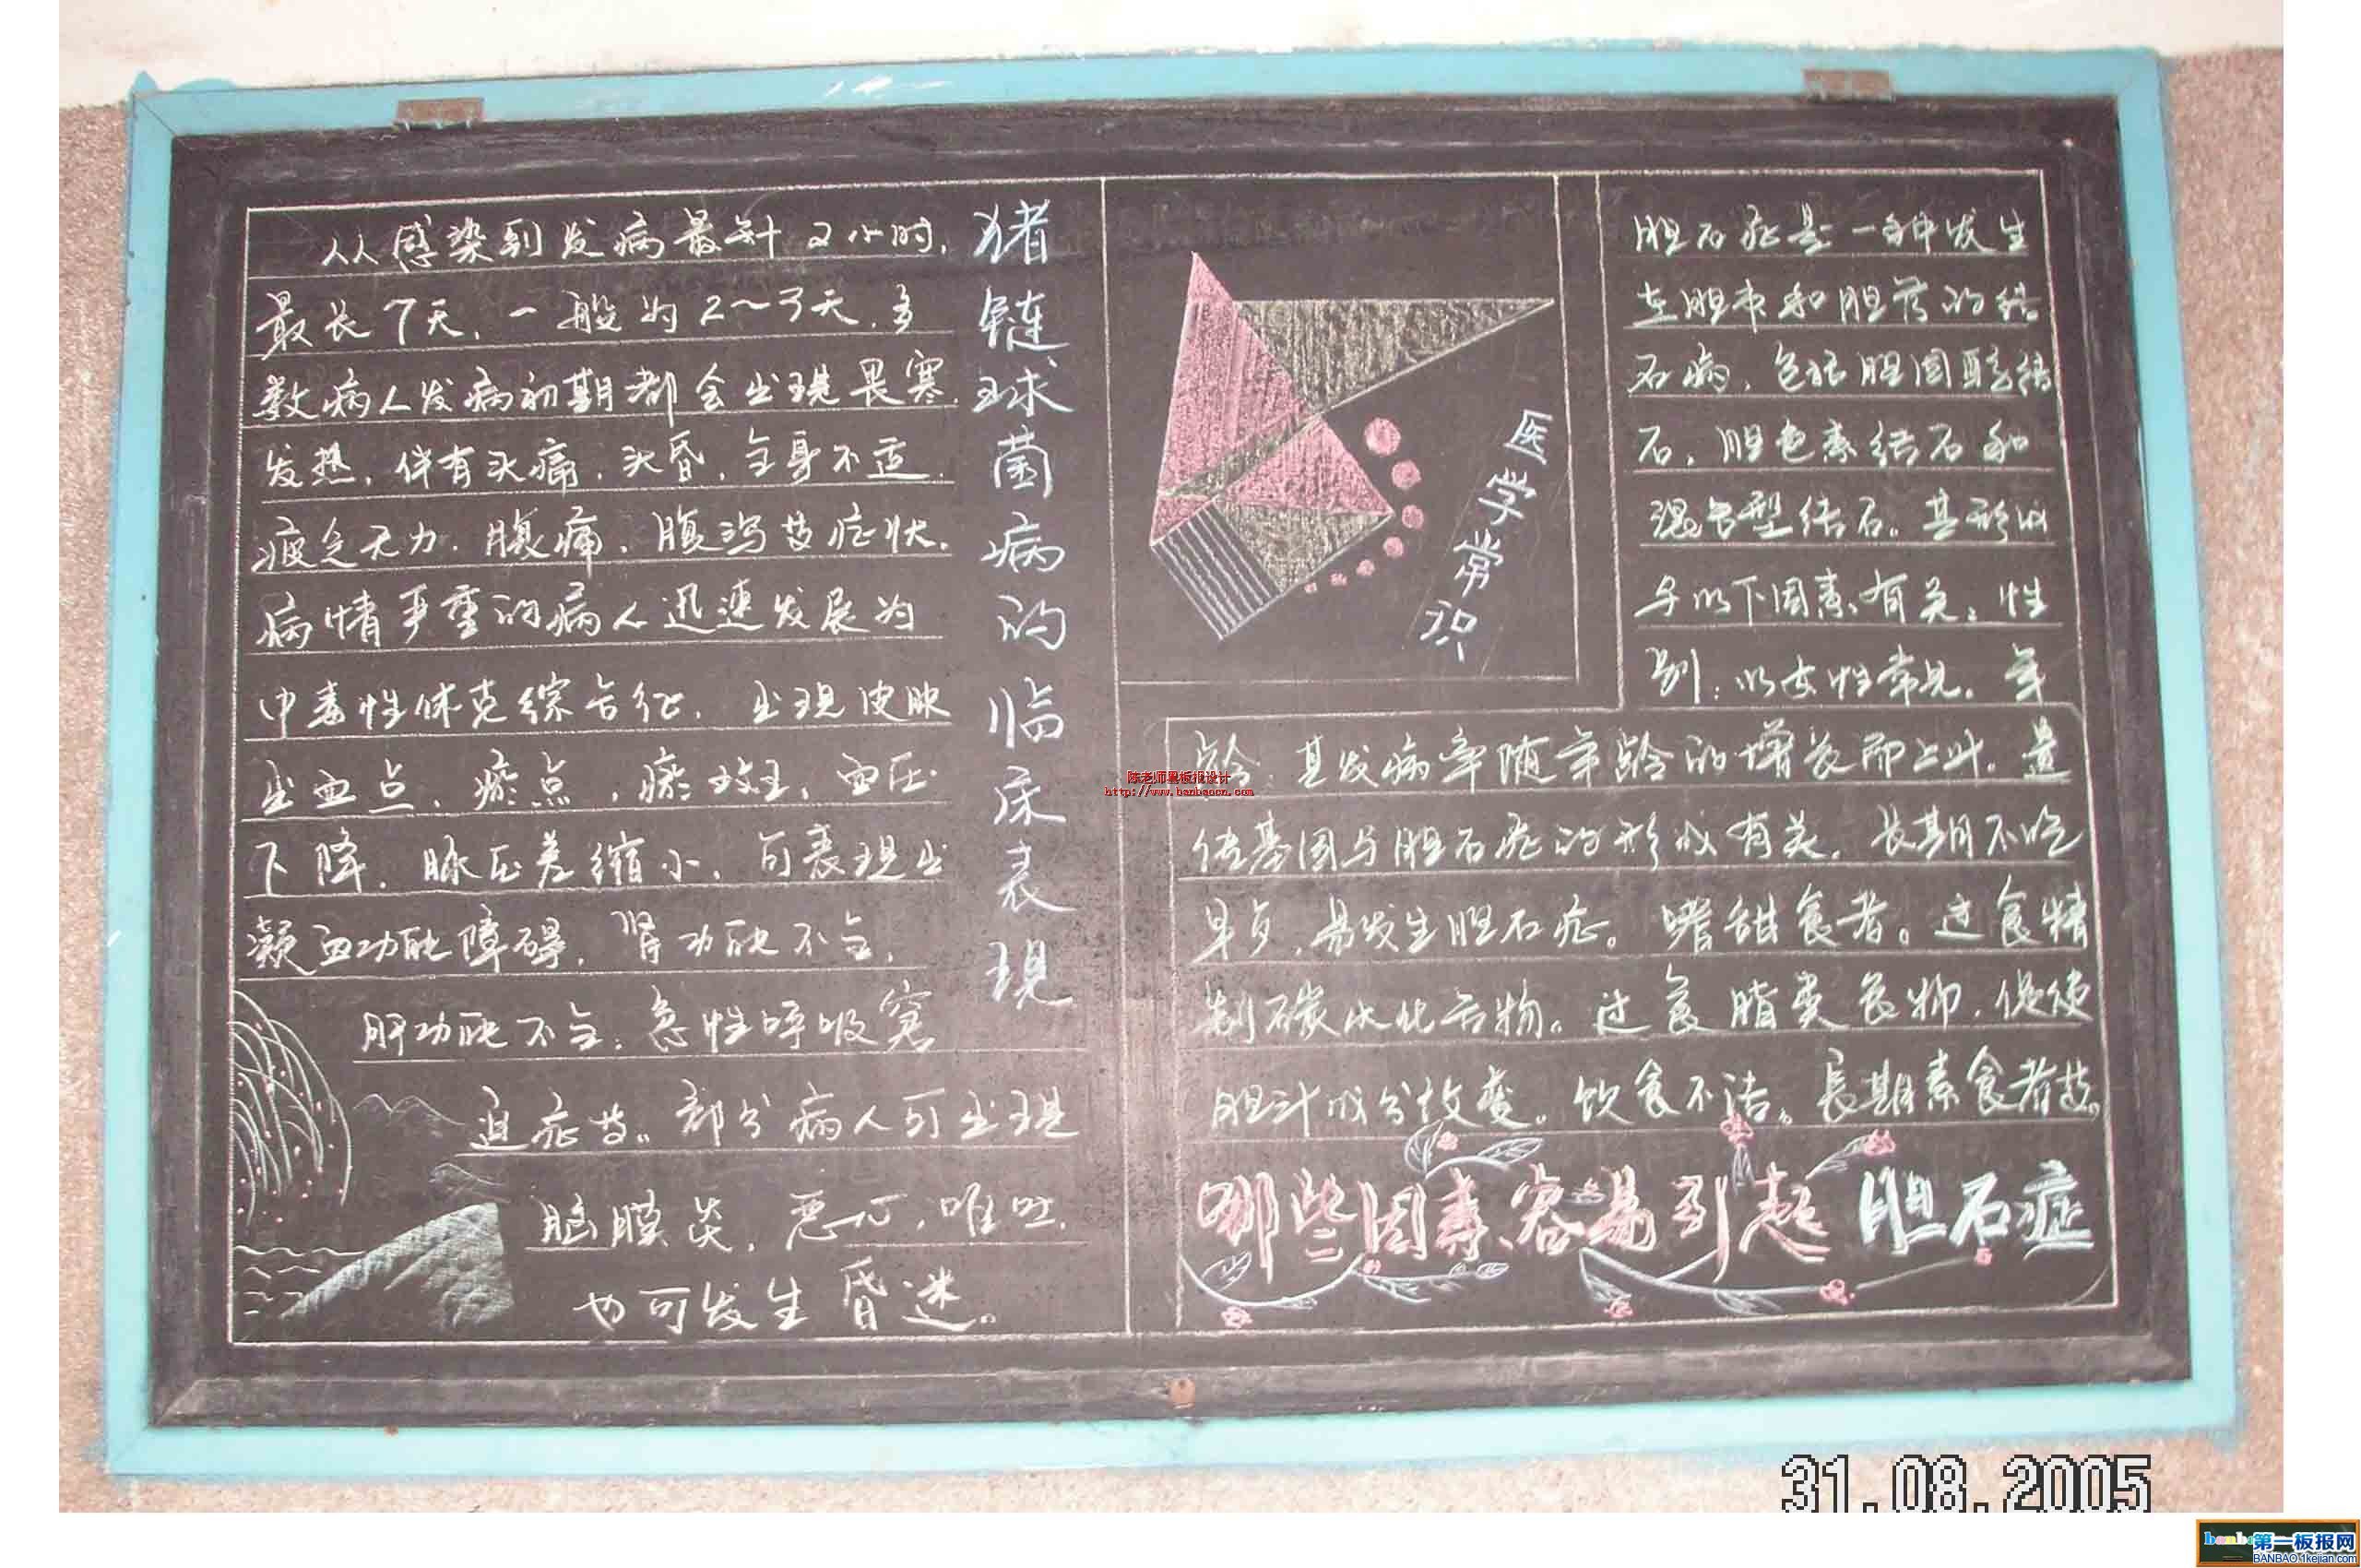 猪链球菌病的临床表现
从感染到发病最短2小时,
最长7天,一般为2~3天,多
数病人发病初期都会出现畏寒.
发热,伴有头痛,头昏,全身不适.
疲乏无力.腹痛、腹泻等症状.
病情严重的病人迅速发展为
中毒性休克综合征,出现皮肤
出血点、瘀点,瘀斑、血压
下降.脉压差缩小,可表现出
凝血功能障碍,肾功能不全,
肝功能不全.急性呼吸窘
迫症等。部分病人可出现
脑膜炎,恶心,呕吐,
也可发生昏迷。
医学常识
胆石症是一种发生
在胆囊和胆管的结
石病,包括胆固醇结
石,胆色素结石和
混合型结石。其形成
与以下因素有关:性
别:以女性常见.年
龄:其发病率随年龄的增长而上升.遗
传基因与胆石症的形成有关.长期不吃
早点,易发生胆石症。嗜甜食者。过食精
制碳水化合物。过食脂类食物,促使
胆汁成分改变。饮食不洁。長期素食者等。
哪些因素容易引起胆石症
陈老师黑板报设计
http://www.banbaocn.com
31.08.2005
第一板报网
BANBAO.1kejian.com